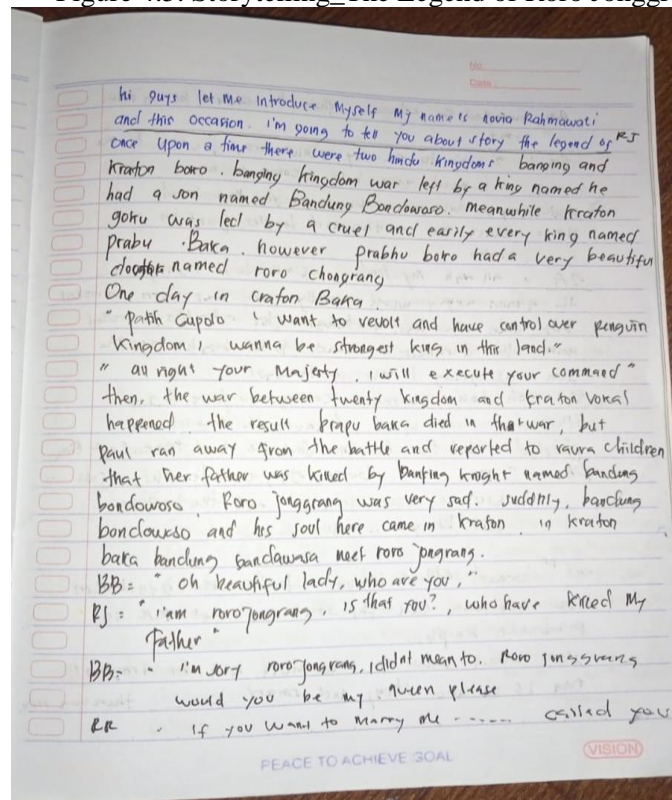 Figure 4.3. Storytelling_The Legend of Roro Jonggr
No.
Date.
hi guys let me introduce Myself My name is novia Rahmawati
and this occasion. I'm going to tell you about story the legend of RJ
once upon a time there were two hindu kingdoms banging and
kraton boko. banging kingdom war left by a king named he
had a son named Bandung Bondowoso. meanwhile kraton
goku was led by a cruel and easily every king named
prabu Baka. however prabhu boko had a very beautiful
named roro chongrang
One day in crafon Baka
"patih Gupolo I want to revolt and have control over penguin
kingdom I wanna be strongest king in this land."
"all right your Majesty. I will execute your command"
then, the war between twenty kingdom and kraton vokal
happened. the result prapu baka died in that war, but
paul ran away from the battle and reported to raura children
that her father was killed by banking knight named bandung
bondowoso. Roro jonggrang was very sad. suddnly, bandung
bondowoso and his soul here came in kraton. in kraton
baka bandung bandawasa meet roro jongrang.
BB= "oh beautiful lady, who are you,"
RJ = "i'am roro jongrang. is that you?, who have killed My
Father"
BB= "i'm sory roro jongrang, i didnt mean to. Roro jonggrang
would you be my queen please
RR . If you want to marry me ...... called you
PEACE TO ACHIEVE GOAL
VISION